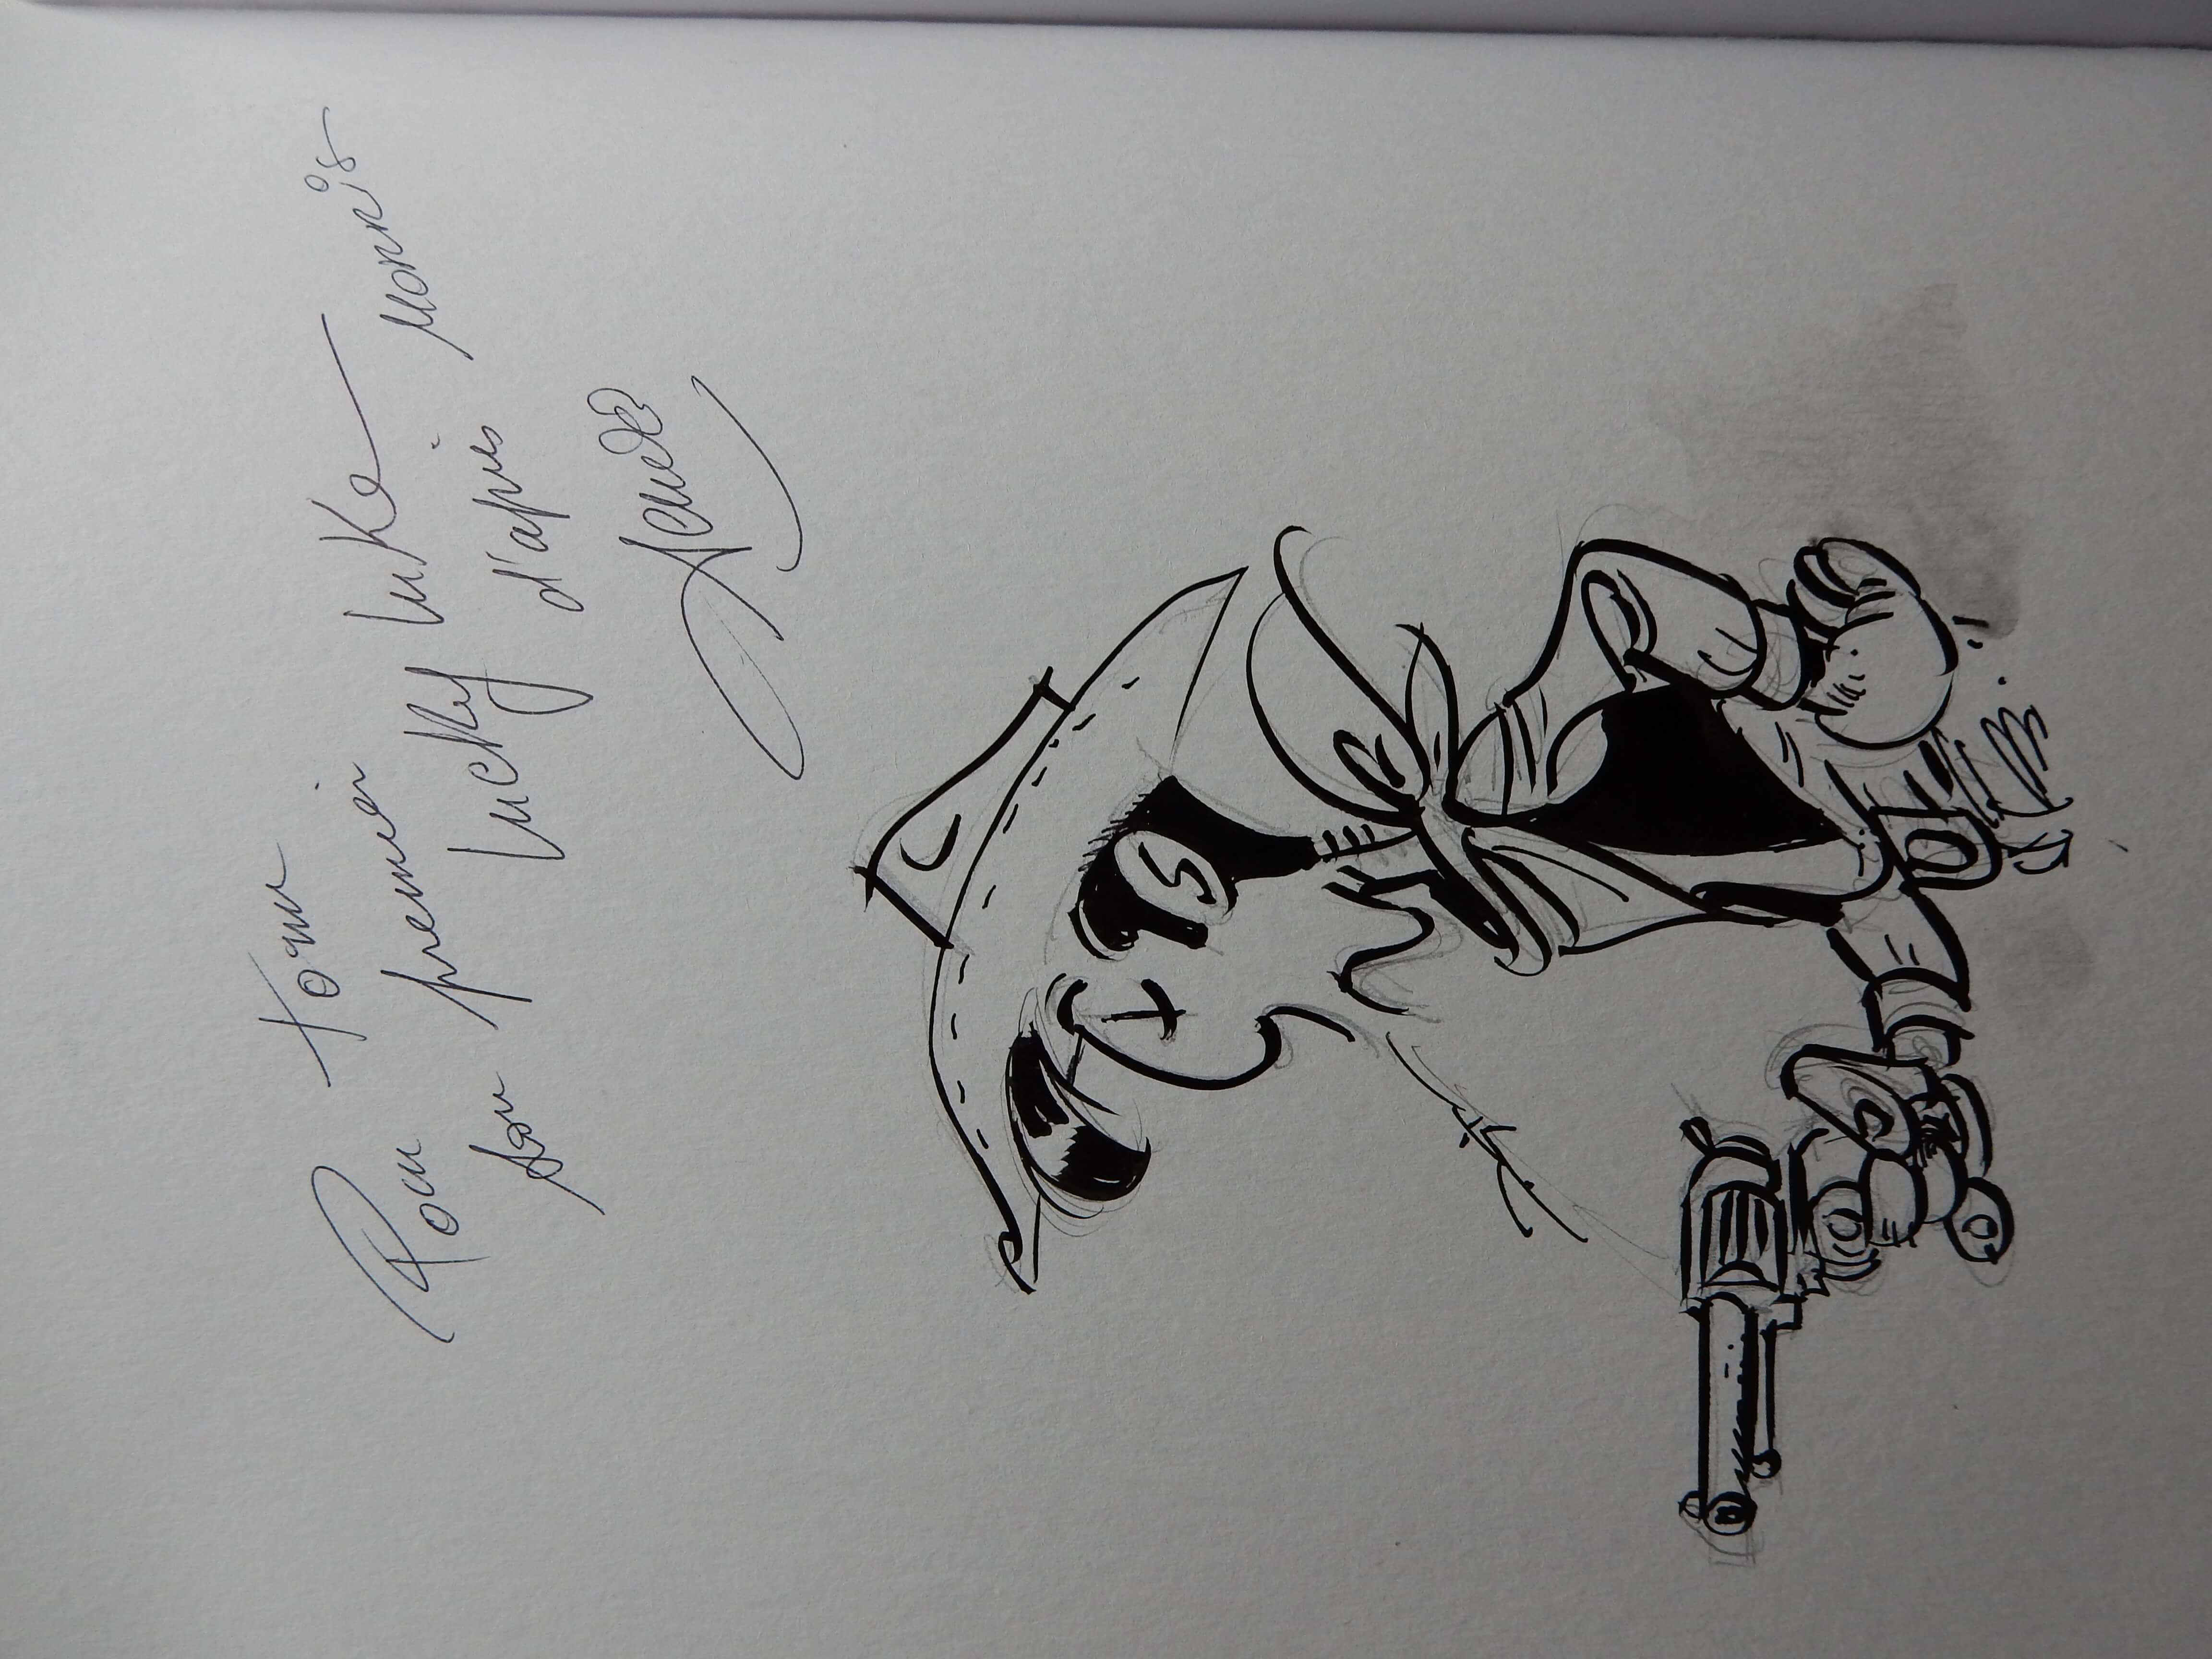 Pour Tom
son premier
Lucky Luke
d'après Morris
Achdé